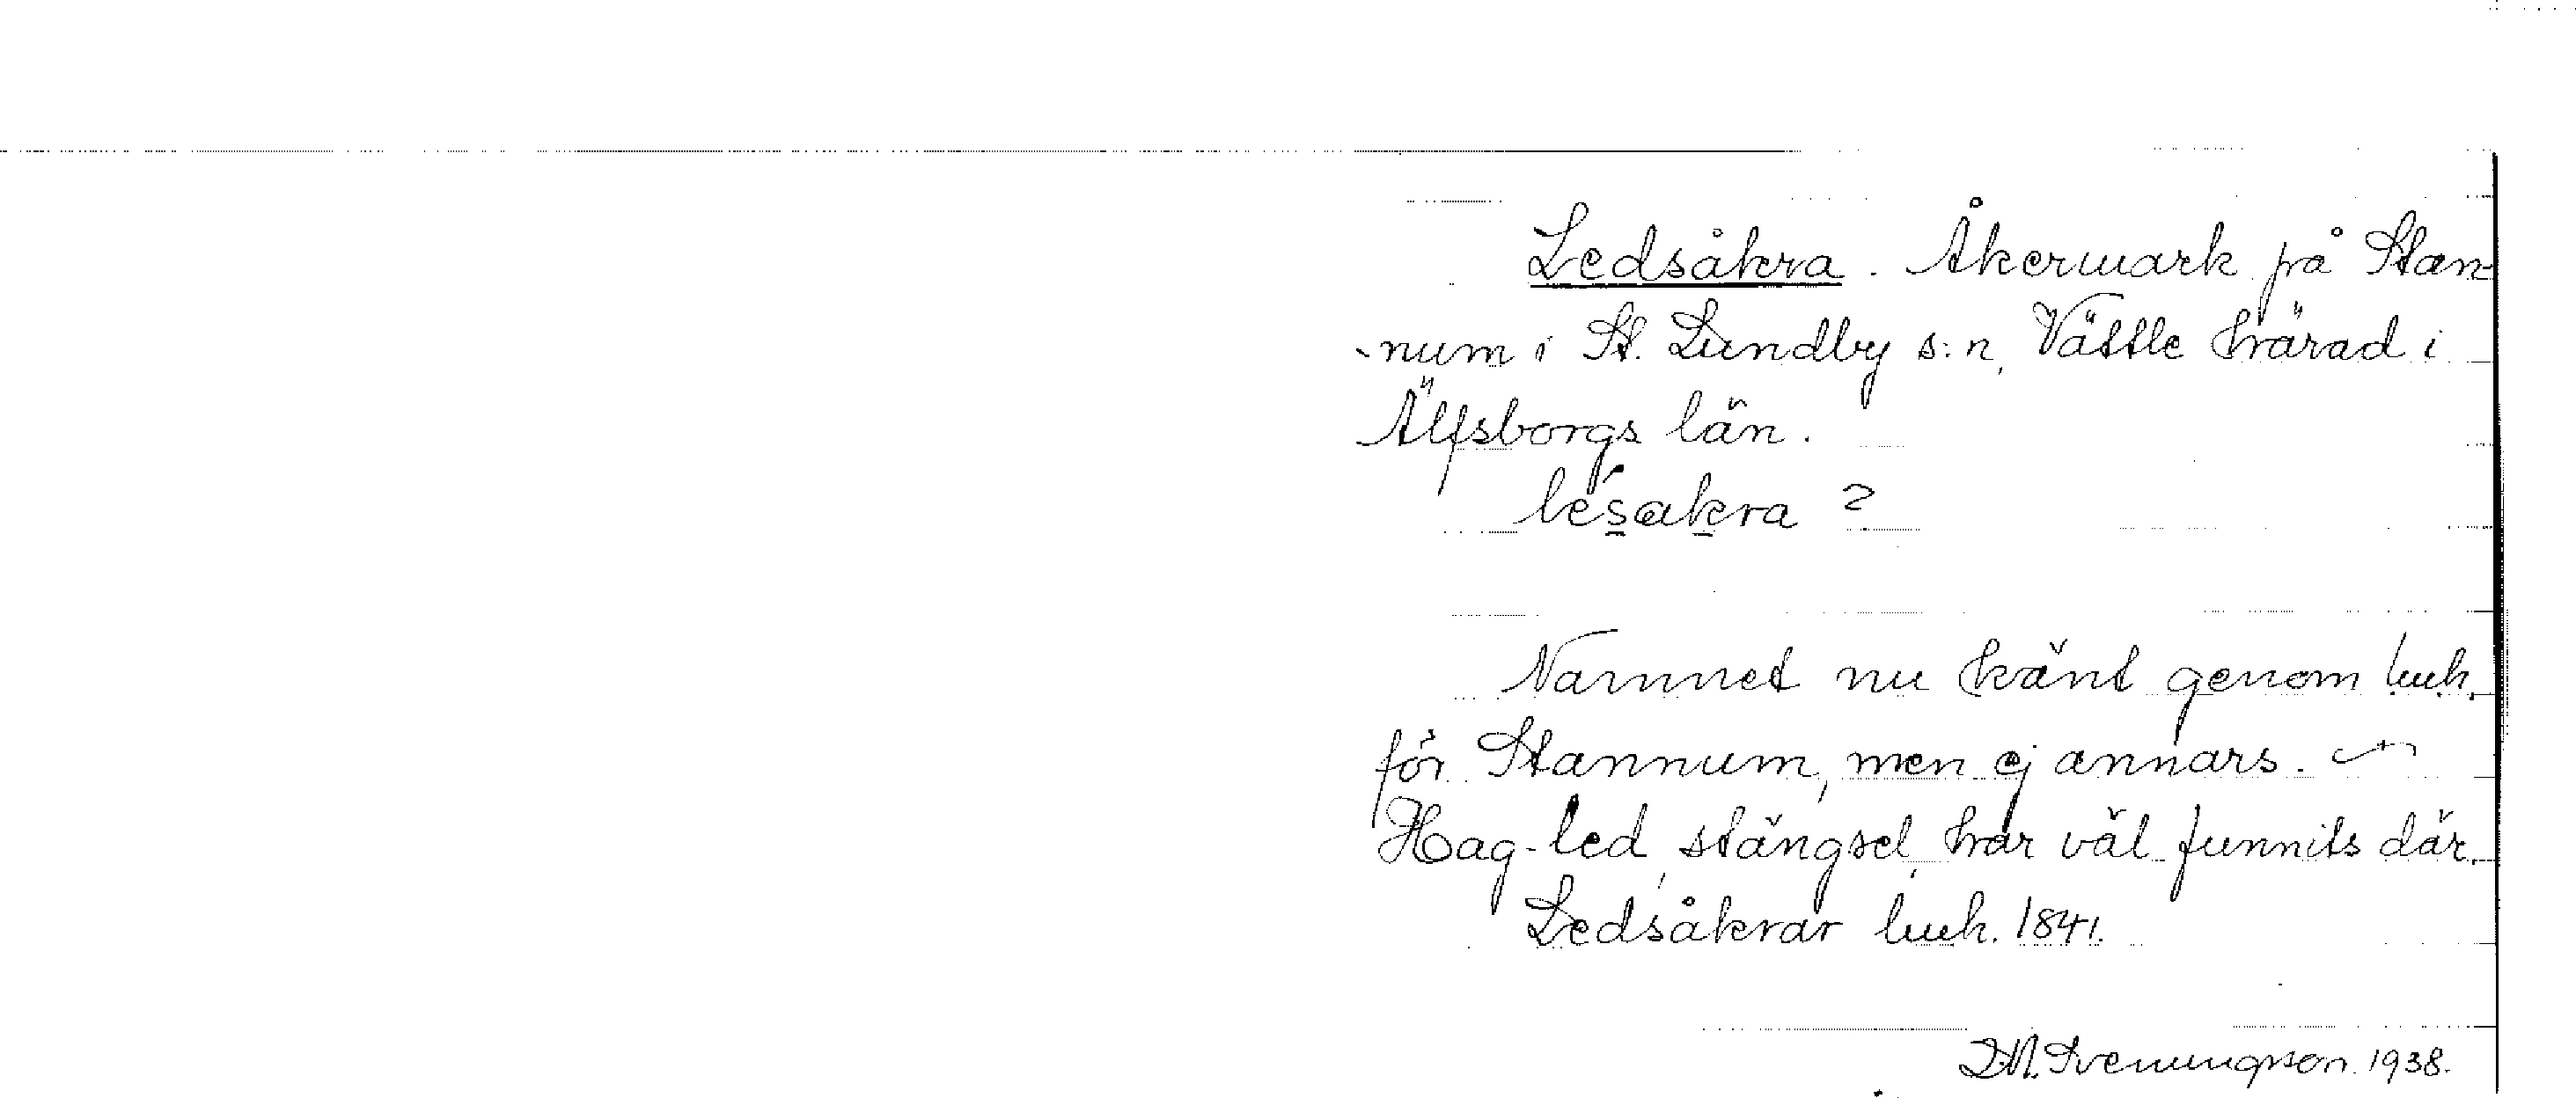 Ledsåkra. Åkermark på Stan-
-num i St. Lundby s:n, Vättle härad i
Älfsborgs län.
lésakra ?
Namnet nu känt genom luh.
för Stannum, men ej annars.
Hag-led, stängsel, har väl funnits där.
Ledsåkrar luh. 1841.
Svenungson. 1938.